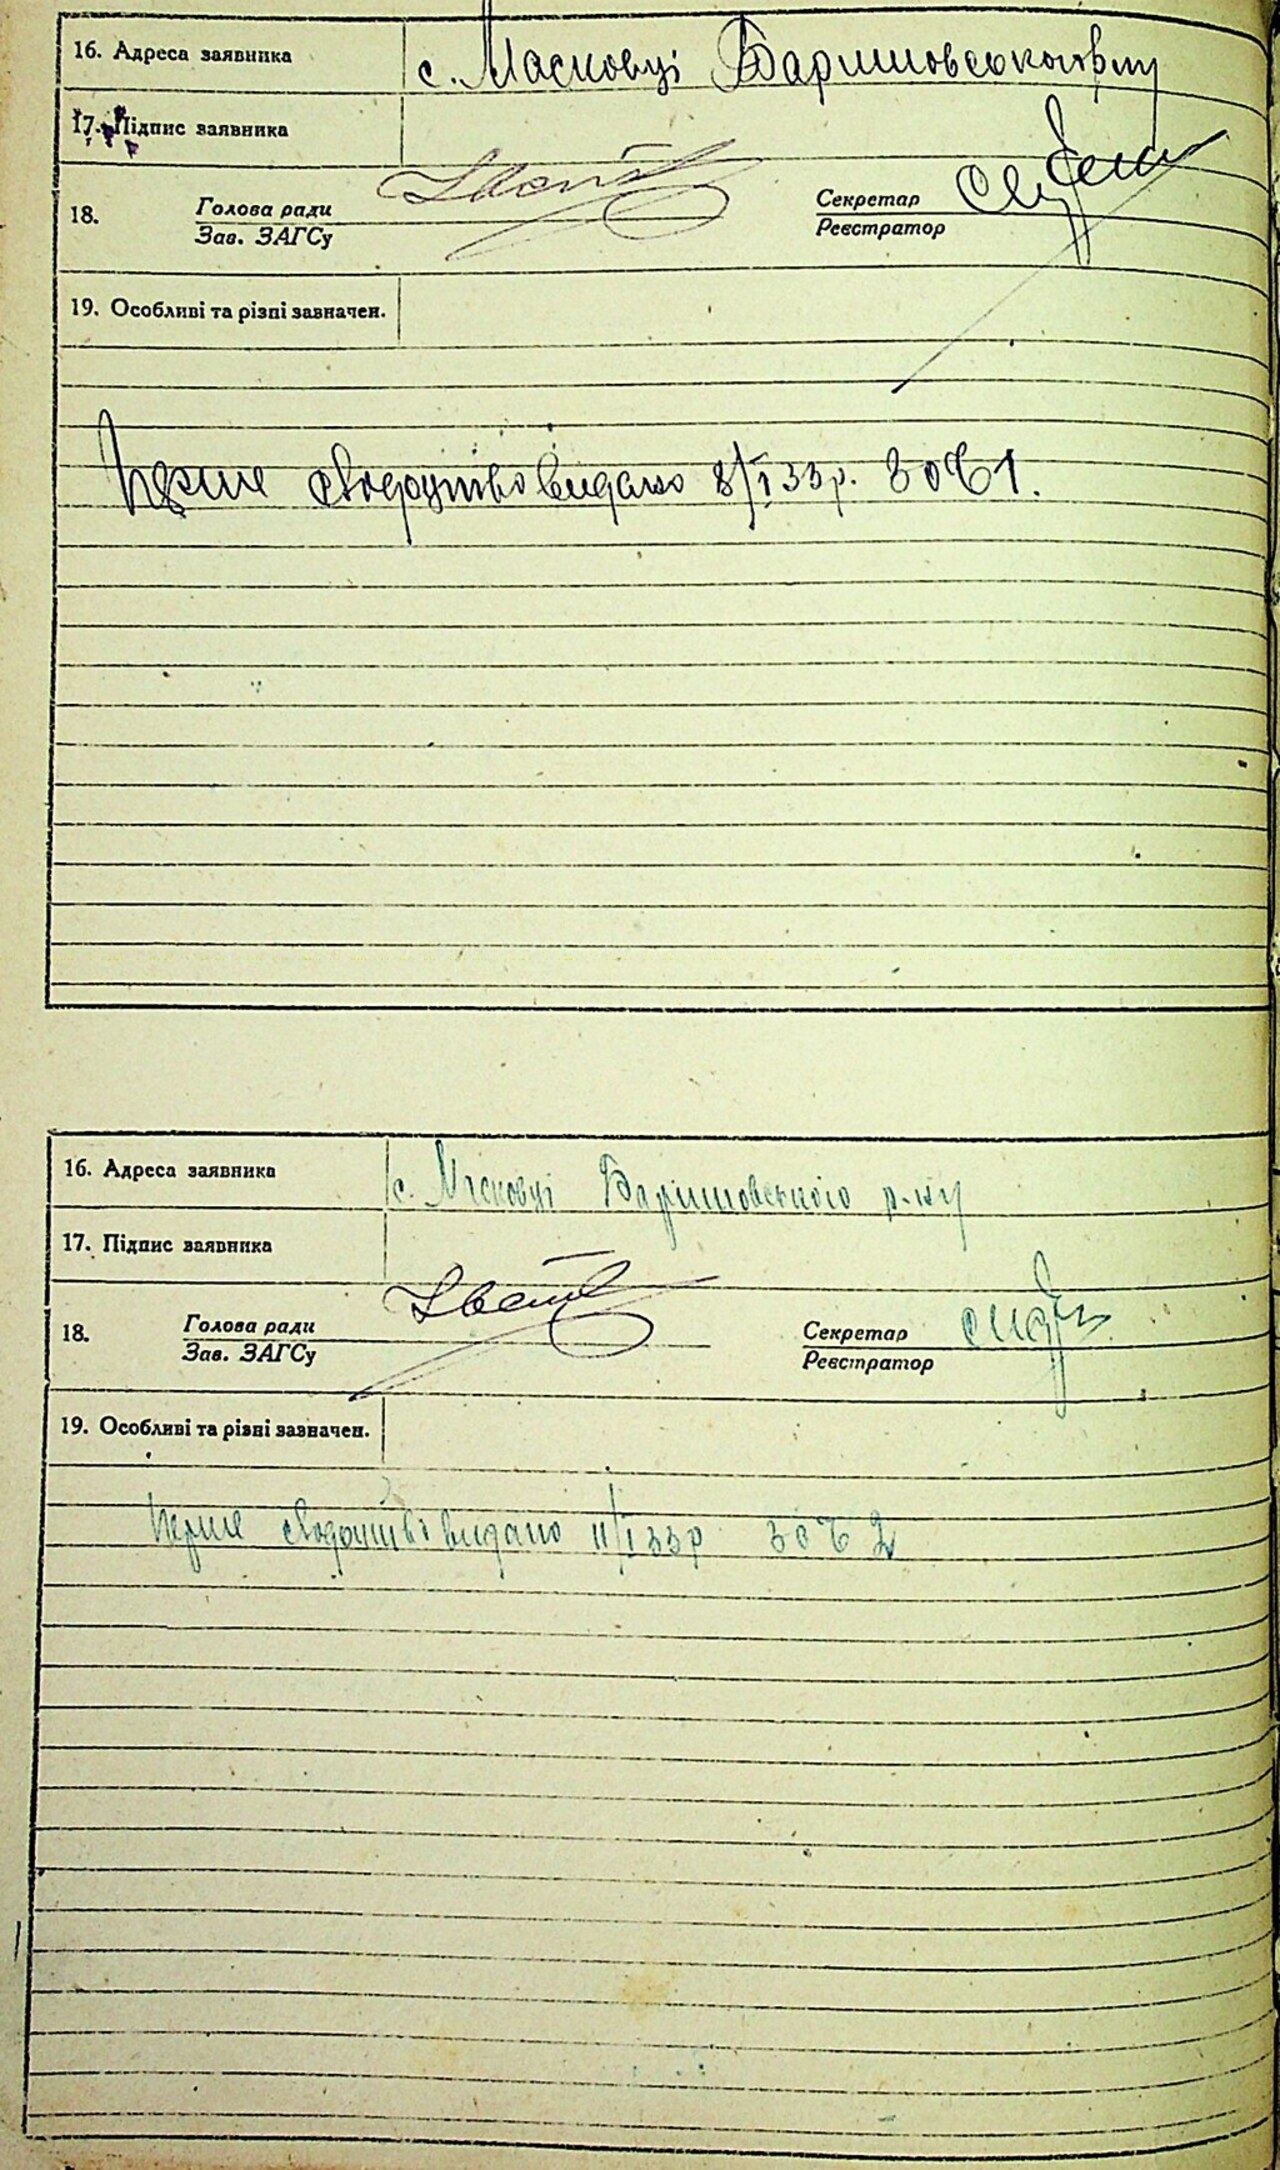 16. Адреса заявника с. Масковці Баришовського р-ну
17. Підпис заявника
18. Голова ради Секретар
Зав. ЗАГСу Реєстратор
19. Особливі та різні зазначен.
Перше свидоцтво видано 8/I 33 р.
16. Адреса заявника с. Масковці Баришовського р-ну
17. Підпис заявника
18. Голова ради Секретар
Зав. ЗАГСу Реєстратор
19. Особливі та різні зазначен.
Перше свидоцтво видано 11/I 33 р